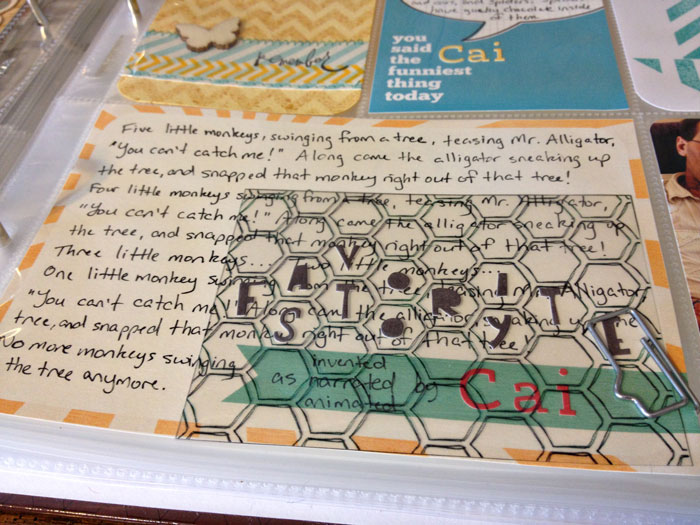 Remember
have
chocolate inside
of them
you
said
the
funniest
thing
today
Cai
Five little monkeys, swinging from a tree, teasing Mr. Alligator,
"You can't catch me!" Along came the alligator sneaking up
the tree, and snapped that monkey right out of that tree!
Four little monkeys swinging from a tree, teasing Mr. Alligator,
"You can't catch me!" Along came the alligator sneaking up
the tree, and snapped that monkey right out of that tree!
Three little monkeys... Two little monkeys...
One little monkey swinging from the tree, teasing Mr. Alligator,
"You can't catch me!" Along came the alligator, sneaking up the
tree, and snapped that monkey right out of that tree!
No more monkeys swinging
the tree anymore.
FAVORITE
STORYTE
invented
as narrated by
animated
Cai